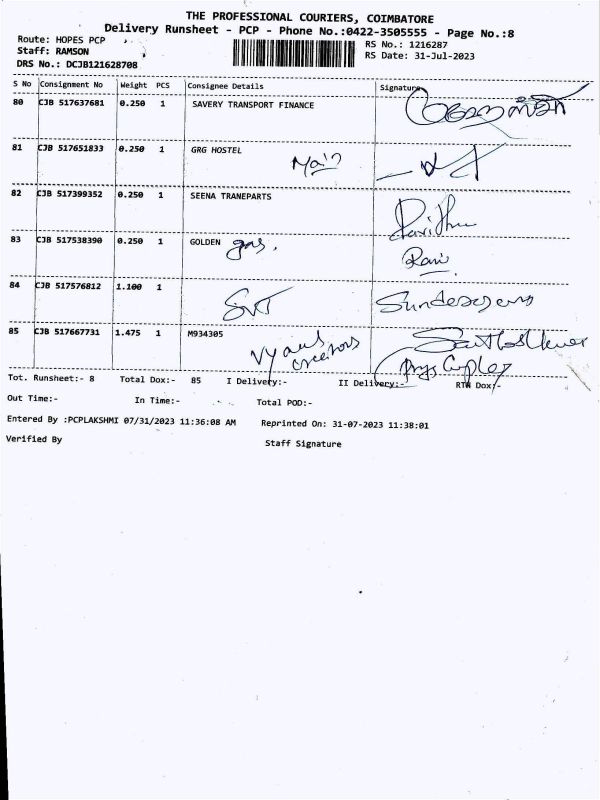 THE PROFESSIONAL COURIERS, COIMBATORE
Delivery Runsheet - PCP - Phone No.:0422-3505555 - Page No.:8
Route: HOPES PCP RS No.: 1216287
Staff: RAMSON RS Date: 31-Jul-2023
DRS No.: DCJB121628708
S No Consignment No Weight PCS Consignee Details Signature
80 CJB 517637681 0.250 1 SAVERY TRANSPORT FINANCE
81 CJB 517651833 0.250 1 GRG HOSTEL Main
82 CJB 517399352 0.250 1 SEENA TRANEPARTS
83 CJB 517538390 0.250 1 GOLDEN gas. Ravi
84 CJB 517576812 1.100 1 SVT
85 CJB 517667731 1.475 1 M934305
Tot. Runsheet:- 8 Total Dox:- 85 I Delivery:- II Delivery:- RTN Dox:-
Out Time:- In Time:- Total POD:-
Entered By :PCPLAKSHMI 07/31/2023 11:36:08 AM Reprinted On: 31-07-2023 11:38:01
Verified By Staff Signature